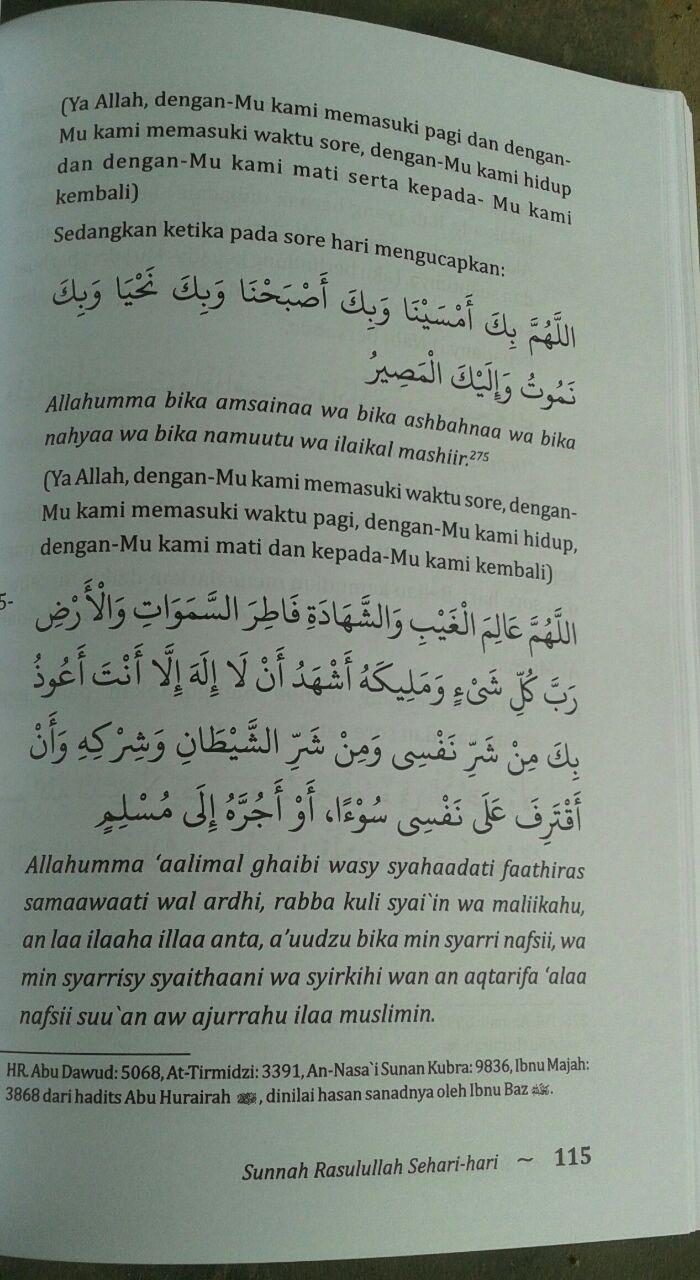 (Ya Allah, dengan-Mu kami memasuki pagi dan dengan-
Mu kami memasuki waktu sore, dengan-Mu kami hidup
dan dengan-Mu kami mati serta kepada- Mu kami
kembali)
Sedangkan ketika pada sore hari mengucapkan:
اللَّهُمَّ بِكَ أَمْسَيْنَا وَبِكَ أَصْبَحْنَا وَبِكَ نَحْيَا وَبِكَ
نَمُوتُ وَإِلَيْكَ الْمَصِيرُ
Allahumma bika amsainaa wa bika ashbahnaa wa bika
nahyaa wa bika namuutu wa ilaikal mashiir.²⁷⁵
(Ya Allah, dengan-Mu kami memasuki waktu sore, dengan-
Mu kami memasuki waktu pagi, dengan-Mu kami hidup,
dengan-Mu kami mati dan kepada-Mu kami kembali)
5- اللَّهُمَّ عَالِمَ الْغَيْبِ وَالشَّهَادَةِ فَاطِرَ السَّمَوَاتِ وَالْأَرْضِ
رَبَّ كُلِّ شَىْءٍ وَمَلِيكَهُ أَشْهَدُ أَنْ لَا إِلَهَ إِلَّا أَنْتَ أَعُوذُ
بِكَ مِنْ شَرِّ نَفْسِى وَمِنْ شَرِّ الشَّيْطَانِ وَشِرْكِهِ وَأَنْ
أَقْتَرِفَ عَلَى نَفْسِى سُوْءًا، أَوْ أَجُرَّهُ إِلَى مُسْلِمٍ
Allahumma ‘aalimal ghaibi wasy syahaadati faathiras
samaawaati wal ardhi, rabba kuli syai`in wa maliikahu,
an laa ilaaha illaa anta, a’uudzu bika min syarri nafsii, wa
min syarrisy syaithaani wa syirkihi wan an aqtarifa ‘alaa
nafsii suu`an aw ajurrahu ilaa muslimin.
HR. Abu Dawud: 5068, At-Tirmidzi: 3391, An-Nasa`i Sunan Kubra: 9836, Ibnu Majah:
3868 dari hadits Abu Hurairah , dinilai hasan sanadnya oleh Ibnu Baz .
Sunnah Rasulullah Sehari-hari ~ 115